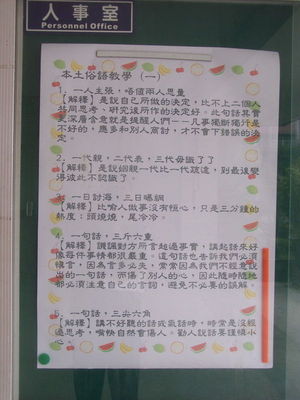 人事室
Personnel Office
本土俗語教學（一）
1．一人主張，唔值兩人思量
【解釋】是說自己所做的決定，比不上二個人
共同思考、研究後所作的決定好。此句話其實
主深層含意就是提醒人們——凡事獨斷獨行是
不好的，應多和別人商討，才不會下錯誤的決
定。
2．一代親，二代表，三代毋識了了
【解釋】是說姻親一代比一代疏遠，到最後變
得彼此不認識了。
一日討海，三日曝網
【解釋】比喻人做事沒有恒心，只是三分鐘的
熱度；頭燒燒，尾冷冷。
4．一句話，三斤六重
【解釋】譏諷對方所言超過事實，講起話來好
像每件事情都很嚴重。這句話也告訴我們必須
慎言，因為言多必失，常常因為我們不經意說
出的一句話，而傷了別人的心，因此隨時隨地
都必須注意自己的言詞，避免不必要的誤解。
5．一句話，三尖六角
【解釋】講不好聽的話或氣話時，時常是沒經
過思考，嘴快自然會傷人。勸人說話要謹慎小
心。